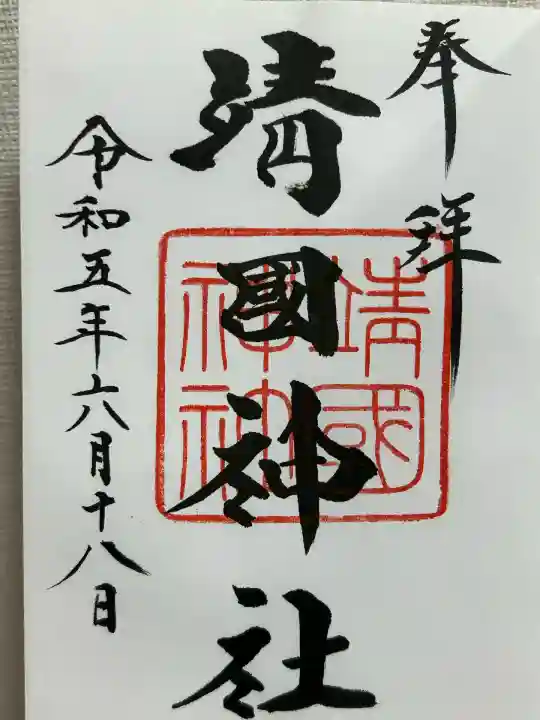 奉拝
靖國神社
靖國
神社
令和五年六月十八日